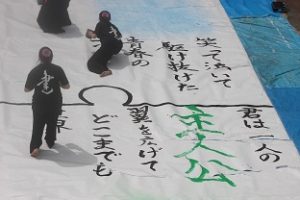 笑って泣いて
駆け抜けた
青春の
君は一人の
主人公
翼を広げて
どこまでも
書